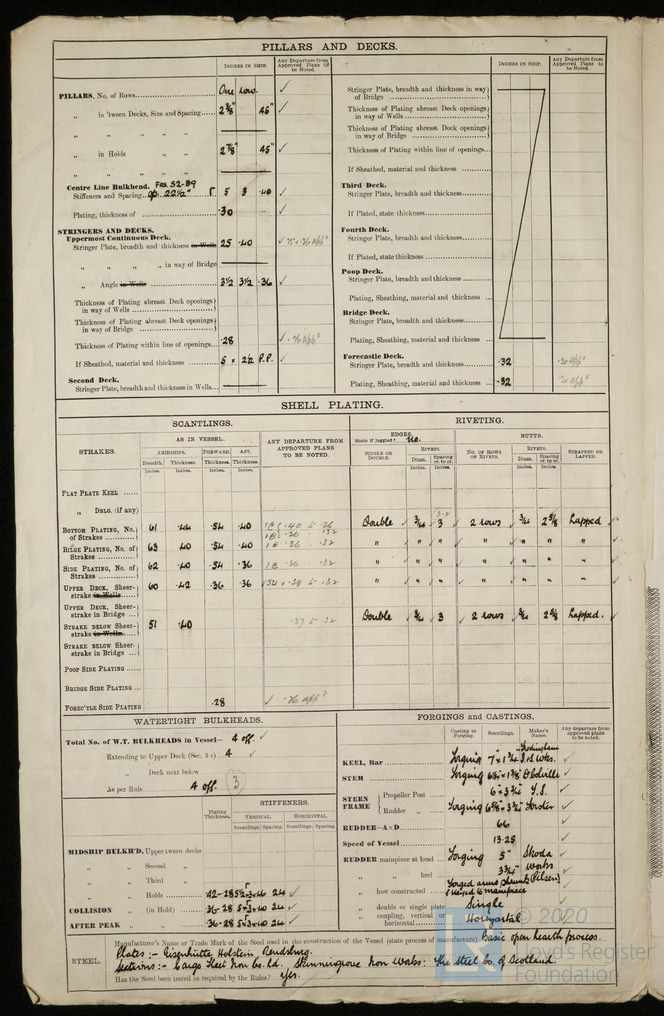 PILLARS AND DECKS.
INCHES IN SHIP.
Any Departure from Approved Plans if be Noted.
PILLARS, No. of Rows
One row. ✓
„ in 'tween Decks, Size and Spacing
2 3/8" 45" ✓
„ „ „ „
„ in Holds
2 7/8" 45" ✓
„ „ „ „
Centre Line Bulkhead. Frs 52-89
Stiffeners and Spacing 22 1/2" 5 3 .40 ✓
Plating, thickness of .30 ✓
STRINGERS AND DECKS.
Uppermost Continuous Deck.
Stringer Plate, breadth and thickness in Wells 25 .40 ✓
„ „ „ „ in way of Bridge
„ Angle in Wells 3 1/2 3 1/2 .36 ✓
Thickness of Plating abreast Deck openings) in way of Wells
Thickness of Plating abreast Deck openings) in way of Bridge
Thickness of Plating within line of openings .28 ✓
If Sheathed, material and thickness 5 x 2 1/2 P.P. ✓
Second Deck.
Stringer Plate, breadth and thickness in Wells
INCHES IN SHIP.
Any Departure from Approved Plans to be Noted.
Stringer Plate, breadth and thickness in way) of Bridge
Thickness of Plating abreast Deck openings) in way of Wells
Thickness of Plating abreast Deck openings) in way of Bridge
Thickness of Plating within line of openings
If Sheathed, material and thickness
Third Deck.
Stringer Plate, breadth and thickness
If Plated, state thickness
Fourth Deck.
Stringer Plate, breadth and thickness
If Plated, state thickness
Poop Deck.
Stringer Plate, breadth and thickness
Plating, Sheathing, material and thickness
Bridge Deck.
Stringer Plate, breadth and thickness
Plating, Sheathing, material and thickness
Forecastle Deck.
Stringer Plate, breadth and thickness .32
Plating, Sheathing, material and thickness .32
SHELL PLATING.
SCANTLINGS.
RIVETING.
STRAKES.
AS IN VESSEL.
AMIDSHIPS. FORWARD. AFT.
Breadth. Thickness. Thickness. Thickness.
Inches. Inches. Inches. Inches.
ANY DEPARTURE FROM APPROVED PLANS TO BE NOTED.
EDGES.
State if joggled? No.
SINGLE OR DOUBLE.
RIVETS.
Diam. Spacing cr. to cr.
Inches. Inches.
BUTTS.
No. OF ROWS OF RIVETS.
RIVETS.
Diam. Spacing cr. to cr.
Inches. Inches.
STRAPPED OR LAPPED.
FLAT PLATE KEEL
„ DBLG. (if any)
BOTTOM PLATING, No.) of Strakes 61 .44 .54 .40 Double ✓ 3/4 ✓ 3 ✓ 2 rows ✓ 3/4 2 5/8 Lapped ✓
BILGE PLATING, No. of) Strakes 63 .40 .54 .40 " " " " " " "
SIDE PLATING, No. of) Strakes 62 .40 .54 .36 " " " " " " "
UPPER DECK, Sheer-) strake in Wells 60 .42 .36 .36 " " " " " " "
UPPER DECK, Sheer-) strake in Bridge Double 3/4 3 2 rows 3/4 2 5/8 Lapped. ✓
STRAKE BELOW SHEER-) strake in Wells 51 .40
STRAKE BELOW SHEER-) strake in Bridge
POOP SIDE PLATING
BRIDGE SIDE PLATING
FOREC'TLE SIDE PLATING .28 ✓
WATERTIGHT BULKHEADS.
Total No. of W.T. BULKHEADS in Vessel— 4 off. ✓
Extending to Upper Deck (Sec. 3 c) 4 ✓
„ Deck next below
As per Rule 4 off. 3
Plating Thickness.
STIFFENERS.
VERTICAL. HORIZONTAL.
Scantlings. Spacing. Scantlings. Spacing.
MIDSHIP BULKH'D, Upper tween decks
„ „ Second „
„ „ Third „
„ „ Holds 24 ✓
COLLISION „ (in Hold) 36-28 24 ✓
AFTER PEAK „ „ 36-28 24 ✓
FORGINGS and CASTINGS.
Casting or Forging. Scantlings. Maker's Name. Any departure from approved plans to be noted.
KEEL, Bar Forging 7" x 1 3/4" ✓
STEM Forging ✓
STERN FRAME { Propeller Post 6" x 3 3/4"
Rudder „ Forging Forster ✓
RUDDER—A x D 66 ✓
Speed of Vessel 13.25 ✓
RUDDER mainpiece at head Forging 5" Skoda Works ✓
„ „ heel 3 3/4" (Pilsen) ✓
„ how constructed Forged arms keyed to mainpiece ✓
„ double or single plate Single ✓
„ coupling, vertical or) horizontal Horizontal ✓
STEEL.
Manufacturer's Name or Trade Mark of the Steel used in the construction of the Vessel (state process of manufacture) Basic open hearth process.
Plates :- Eisenhütte Holstein Rendsburg.
Sections :- Cargo Fleet Iron Co. Ld. Skinningrove Iron Works. The Steel Co. of Scotland.
Has the Steel been tested as required by the Rules? Yes.
© 2020
Lloyd's Register
Foundation